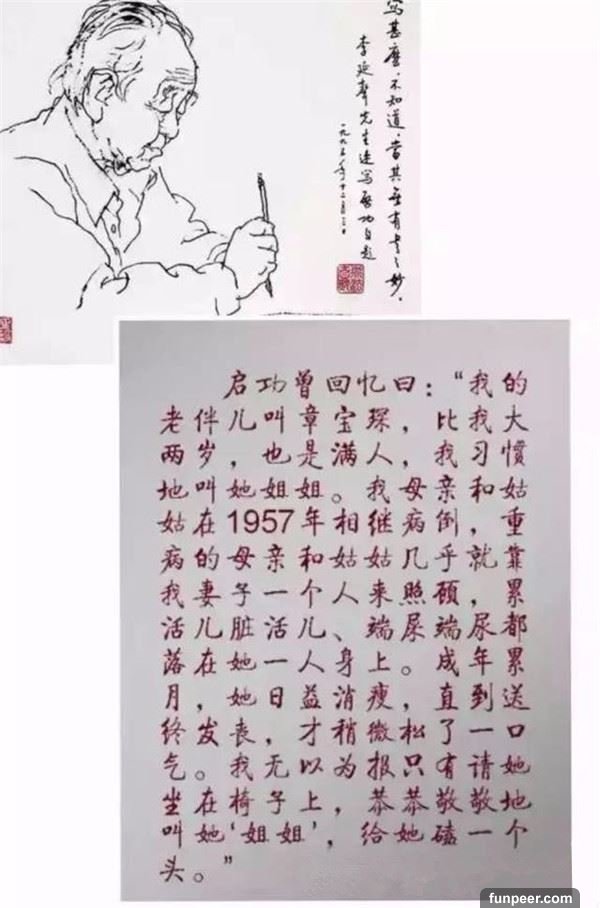 写甚麼，不知道，當其無有之妙．
李延聲先生速写啓功自題
启功曾回忆曰：“我的
老伴儿叫章宝琛，比我大
两岁，也是满人，我习惯
地叫她姐姐。我母亲和姑
姑在1957年相继病倒，重
病的母亲和姑姑几乎就靠
我妻子一个人来照顾，累
活儿脏活儿、端屎端尿都
落在她一人身上。成年累
月，她日益消瘦，直到送
终发丧，才稍微松了一口
气。我无以为报只有请她
坐在椅子上，恭恭敬敬地
叫她‘姐姐’，给她磕一个
头。”
funpeer.com